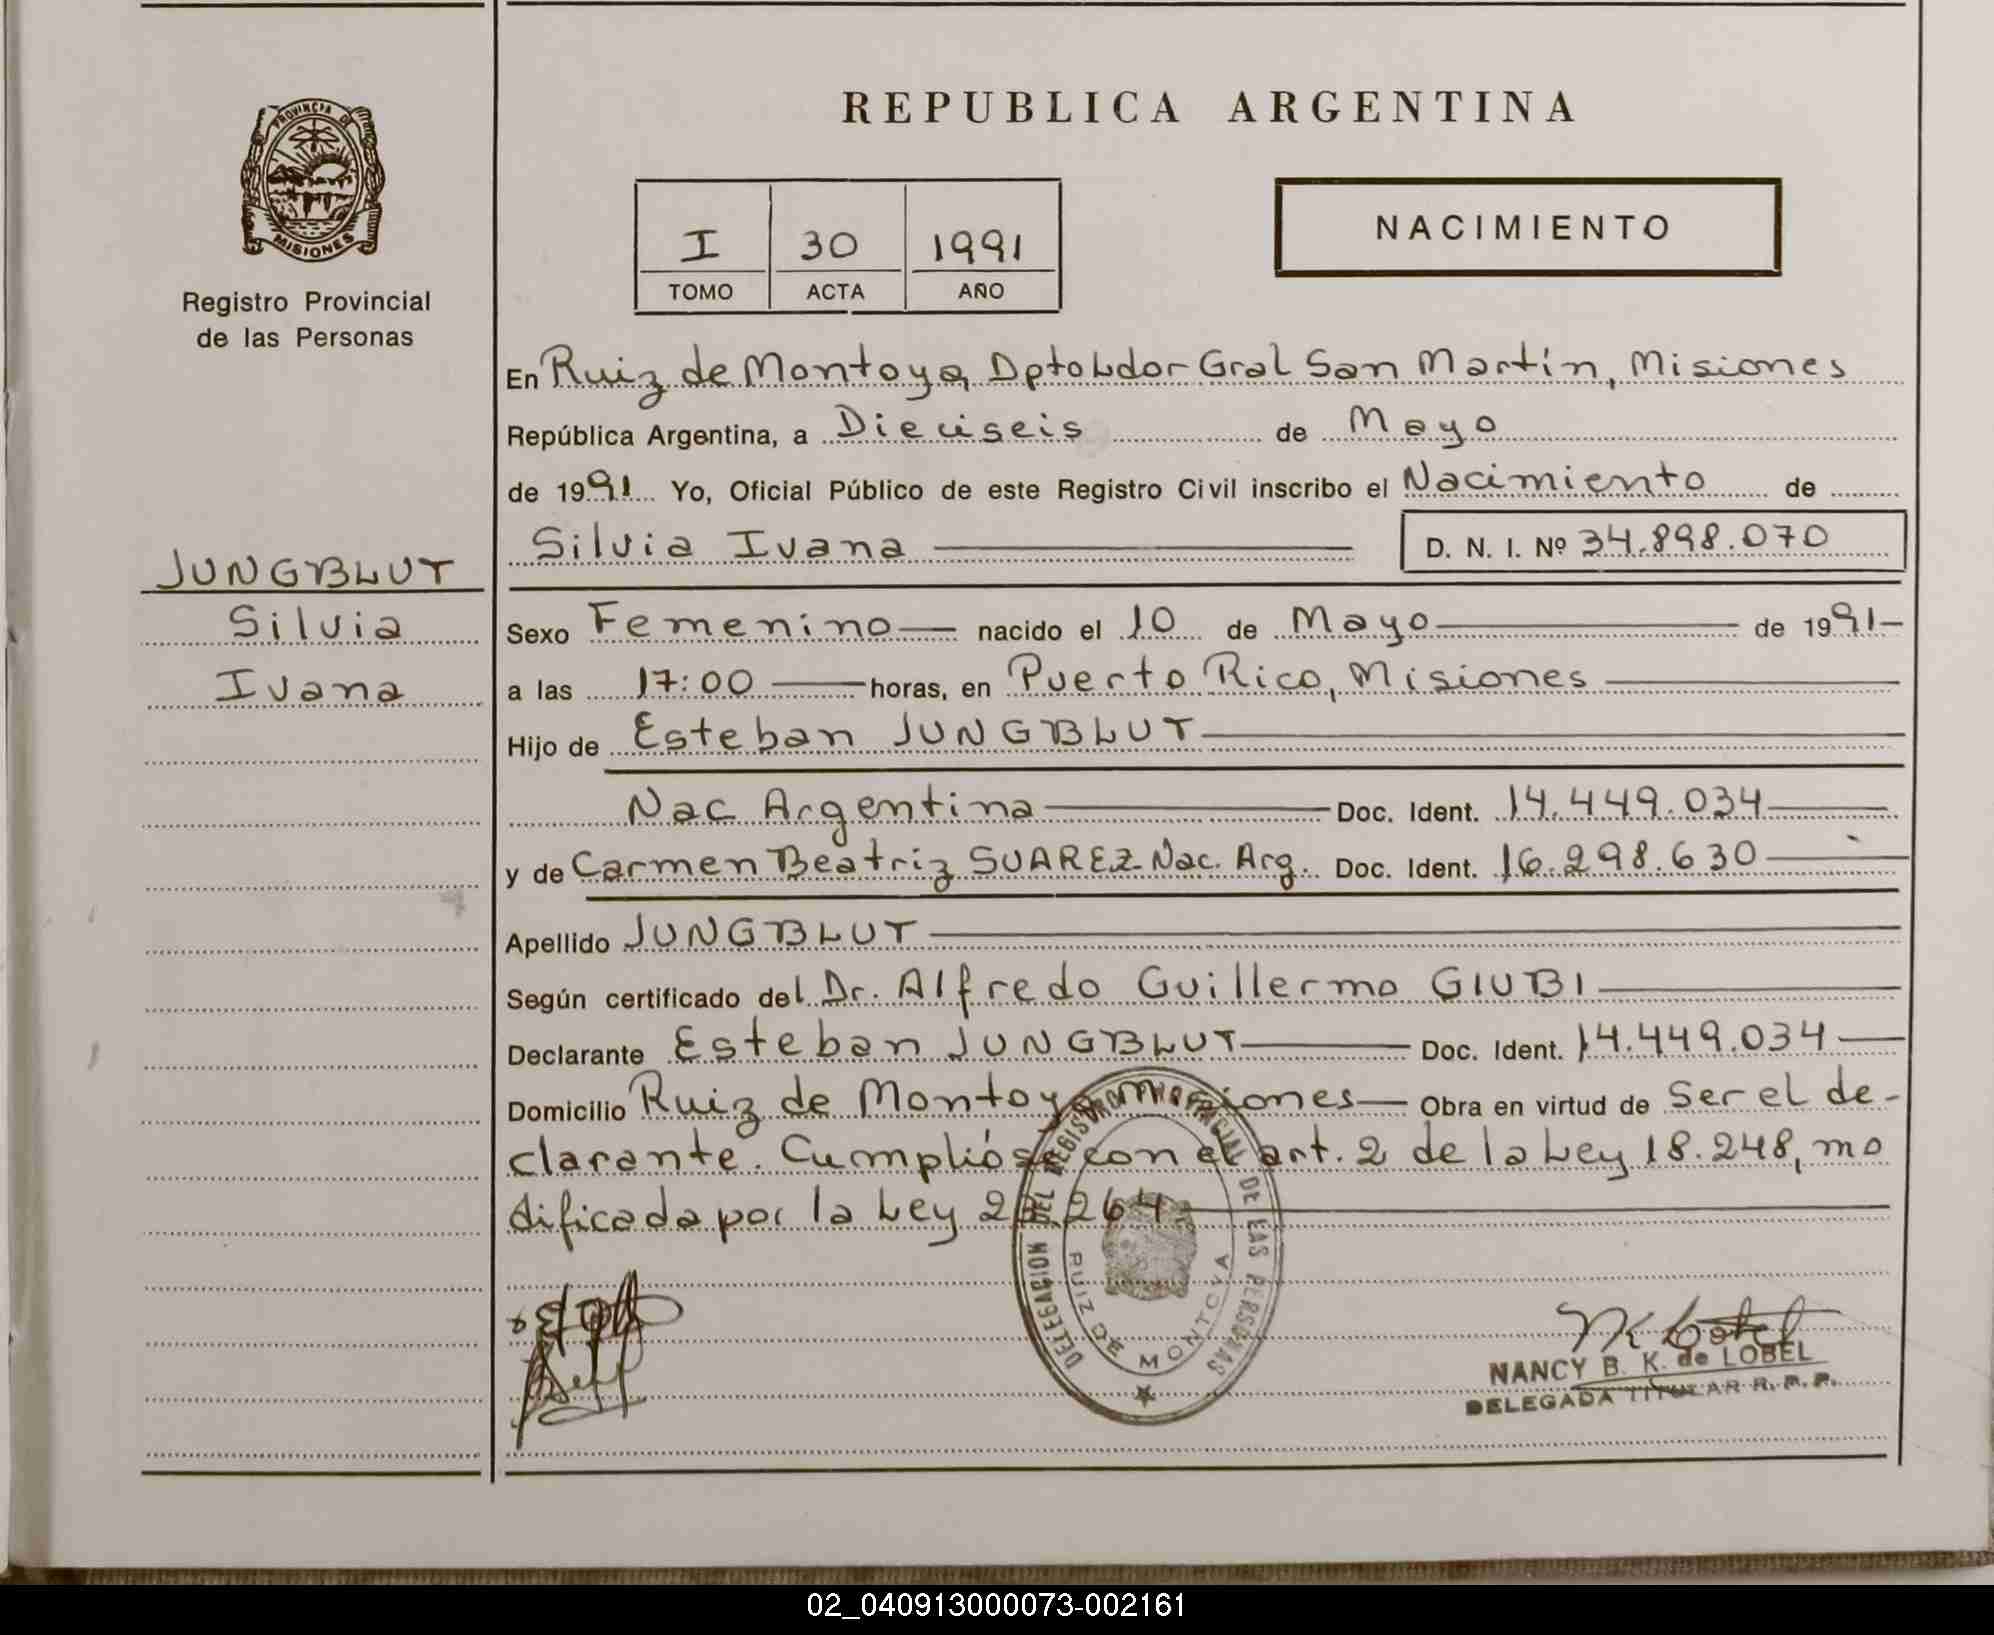 REPUBLICA ARGENTINA
PROVINCIA DE
MISIONES
Registro Provincial
de las Personas
I 30 1991
TOMO ACTA AÑO
NACIMIENTO
En Ruiz de Montoya, Dpto Ldor Gral San Martín, Misiones
República Argentina, a Dieciseis de Mayo
de 1991 Yo, Oficial Público de este Registro Civil inscribo el Nacimiento de
Silvia Ivana D. N. I. Nº 34.898.070
JUNGBLUT
Silvia
Ivana
Sexo Femenino nacido el 10 de Mayo de 1991
a las 17:00 horas, en Puerto Rico, Misiones
Hijo de Esteban JUNGBLUT
Nac Argentina Doc. Ident. 14.449.034
y de Carmen Beatriz SUAREZ Nac. Arg. Doc. Ident. 16.298.630
Apellido JUNGBLUT
Según certificado del Dr. Alfredo Guillermo GIUBI
Declarante Esteban JUNGBLUT Doc. Ident. 14.449.034
Domicilio Ruiz de Montoya Misiones Obra en virtud de Ser el de-
clarante. Cumplióse con el art. 2 de la Ley 18.248, mo
dificada por la Ley 23.264
DELEGACION DEL REGISTRO PROVINCIAL DE LAS PERSONAS
RUIZ DE MONTOYA
NANCY B. K. de LOBEL
DELEGADA TITULAR R. P. P.
02_040913000073-002161